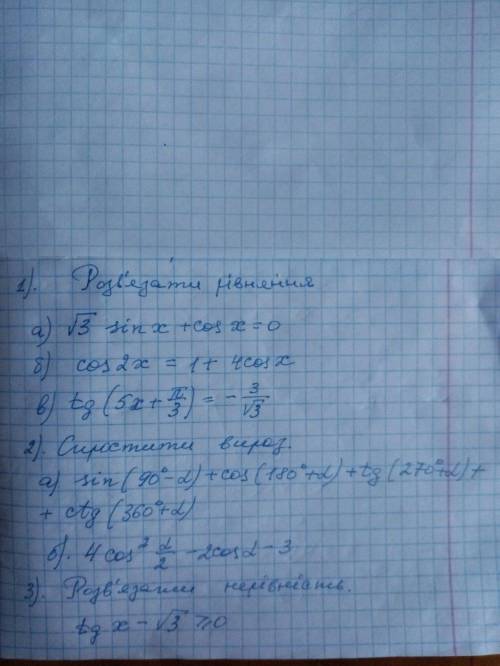 1). Розв'язати рівняння
а) √3 sin x + cos x = 0
б) cos 2x = 1 + 4cos x
в) tg (5x + π/3) = - 3/√3
2). Спростити вираз.
а) sin (90° - α) + cos (180° + α) + tg (270° + α) +
+ ctg (360° + α)
б). 4 cos² α/2 - 2cos α - 3
3). Розв'язати нерівність.
tg x - √3 ≥ 0